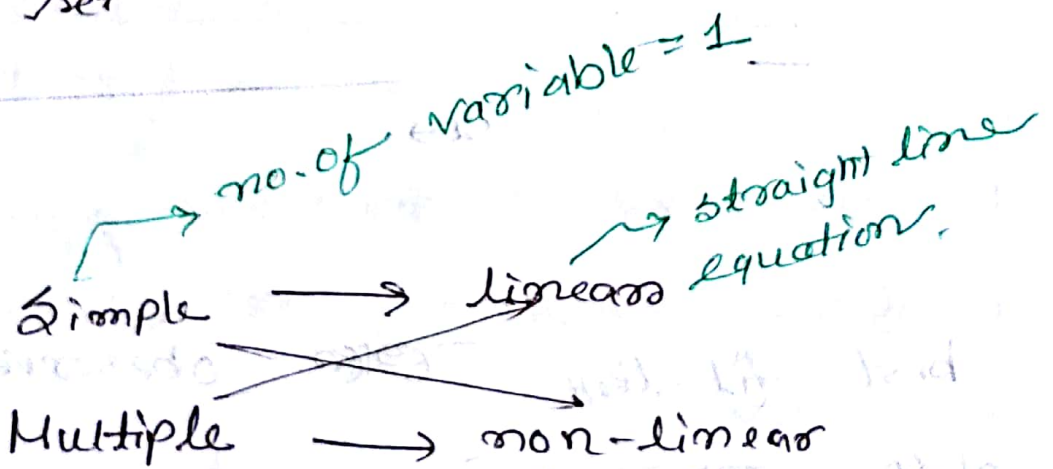 no. of variable = 1
straight line
equation.
Simple → linear
Multiple → non-linear